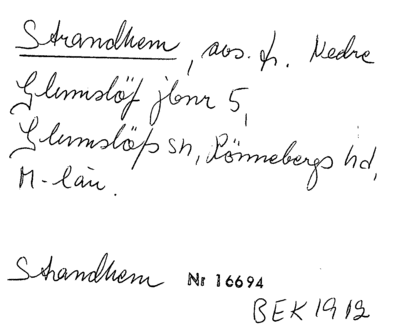 Strandhem, avs. fr. Nedre
Glumslöf jbnr 5,
Glumslöfs sn, Rönnebergs hd,
M-län.
Strandhem Nr 16694
BEK 1912